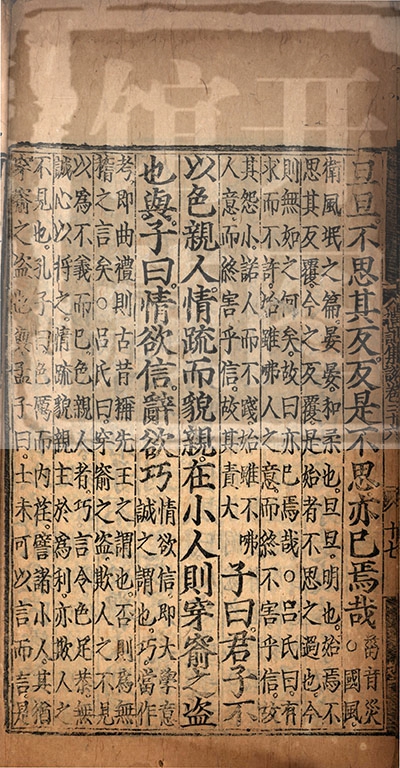 旦旦。不思其反。反是不思。亦已焉哉。
音災○國風
衛風氓之篇。晏晏和柔也。旦旦。明也。始焉不
思其反覆。今之反覆。是始者不思之過也。今
則無如之何矣。故曰亦已焉哉。○呂氏曰。有
求而不許。始雖咈人之意。而終不害乎信。故
其怨小。諾人而不踐。始雖不咈
人意。而終害乎信。故其責大
子曰。君子不
以色親人。情疏而貌親。在小人則穿窬之盜
也與。子曰。情欲信。辭欲巧。
情欲信。即大學意
誠之謂也。巧。當作
考。即曲禮則古昔稱先王之謂也。否則為無
稽之言矣。○呂氏曰。穿窬之盜。欺人之不見
以為不義而已。色親人者。巧言令色足恭。無
誠心以將之。情疏貌親。主於為利。亦欺人之
不見也。孔子曰。色厲而內荏。譬諸小人。其猶
穿窬之盜也與。孟子曰。士未可以言而言。是